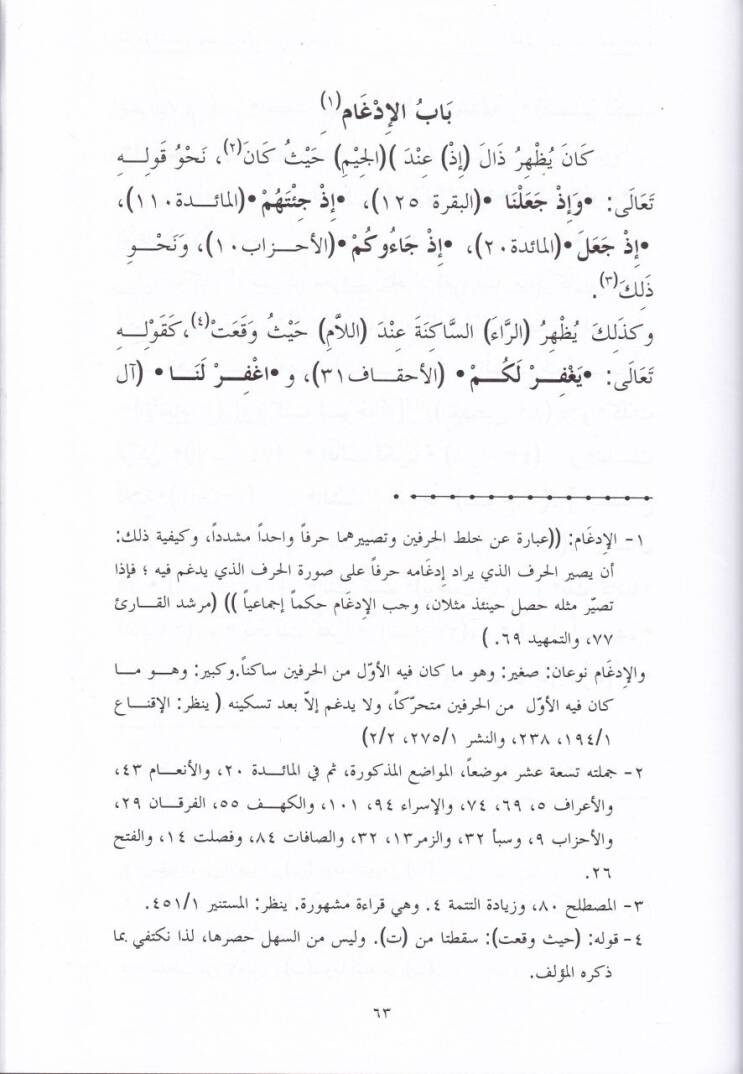 بَابُ الإِدْغَامِ(١)
كَانَ يُظْهِرُ ذَالَ (إِذْ) عِنْدَ )(الجِيْمِ) حَيْثُ كَانَ(٢)، نَحْوُ قَولِـهِ
تَعَالَى: •وَإِذْ جَعَلْنَا •(البقرة ١٢٥)، •إِذْ جِئْتَهُمْ •(المائـدة١١٠)،
•إِذْ جَعَلَ •(المائدة٢٠)، •إِذْ جَاءُوكُمْ •(الأحـزاب١٠)، وَنَحْـوِ
ذَلِكَ(٣).
وكذَلِكَ يُظْهِرُ (الرَّاءَ) السَّاكنَةَ عِنْدَ (اللاَّمِ) حَيْثُ وَقَعَتْ(٤)،كَقَوْلِـهِ
تَعَالَى: •يَغْفِـرْ لَكُـمْ • (الأحقـاف٣١)، و •اغْفِـرْ لَنَـا • (آل
١- الإِدغَام: ((عبارة عن خلط الحرفين وتصييرهما حرفاً واحداً مشدداً، وكيفية ذلك:
أن يصير الحرف الذي يراد إدغامه حرفاً على صورة الحرف الذي يدغم فيه ؛ فإذا
تصيّر مثله حصل حينئذ مثلان، وجب الإدغَام حكماً إجماعياً )) (مرشد القـارئ
٧٧، والتمهيد ٦٩. )
والإِدغَام نوعان: صغير: وهو ما كان فيه الأوّل من الحرفين ساكناً.وكبير: وهـو مـا
كان فيه الأوّل من الحرفين متحرّكاً، ولا يدغم إلاّ بعد تسكينه ( ينظر: الإقنـاع
١٩٤/١، ٢٣٨، والنشر ٢٧٥/١، ٢/٢)
٢- جملته تسعة عشر موضعاً، المواضع المذكورة، ثم في المائـدة ٢٠، والأنعـام ٤٣،
والأعراف ٥، ٦٩، ٧٤، والإسراء ٩٤، ١٠١، والكهـف ٥٥، الفرقـان ٢٩،
والأحزاب ٩، وسبأ ٣٢، والزمر١٣، ٣٢، والصافات ٨٤، وفصلت ١٤، والفتح
٢٦.
٣- المصطلح ٨٠، وزيادة التتمة ٤. وهي قراءة مشهورة. ينظر: المستنير ٤٥١/١.
٤- قوله: (حيث وقعت): سقطتا من (ت). وليس من السهل حصرها، لذا نكتفي بما
ذكره المؤلف.
٦٣